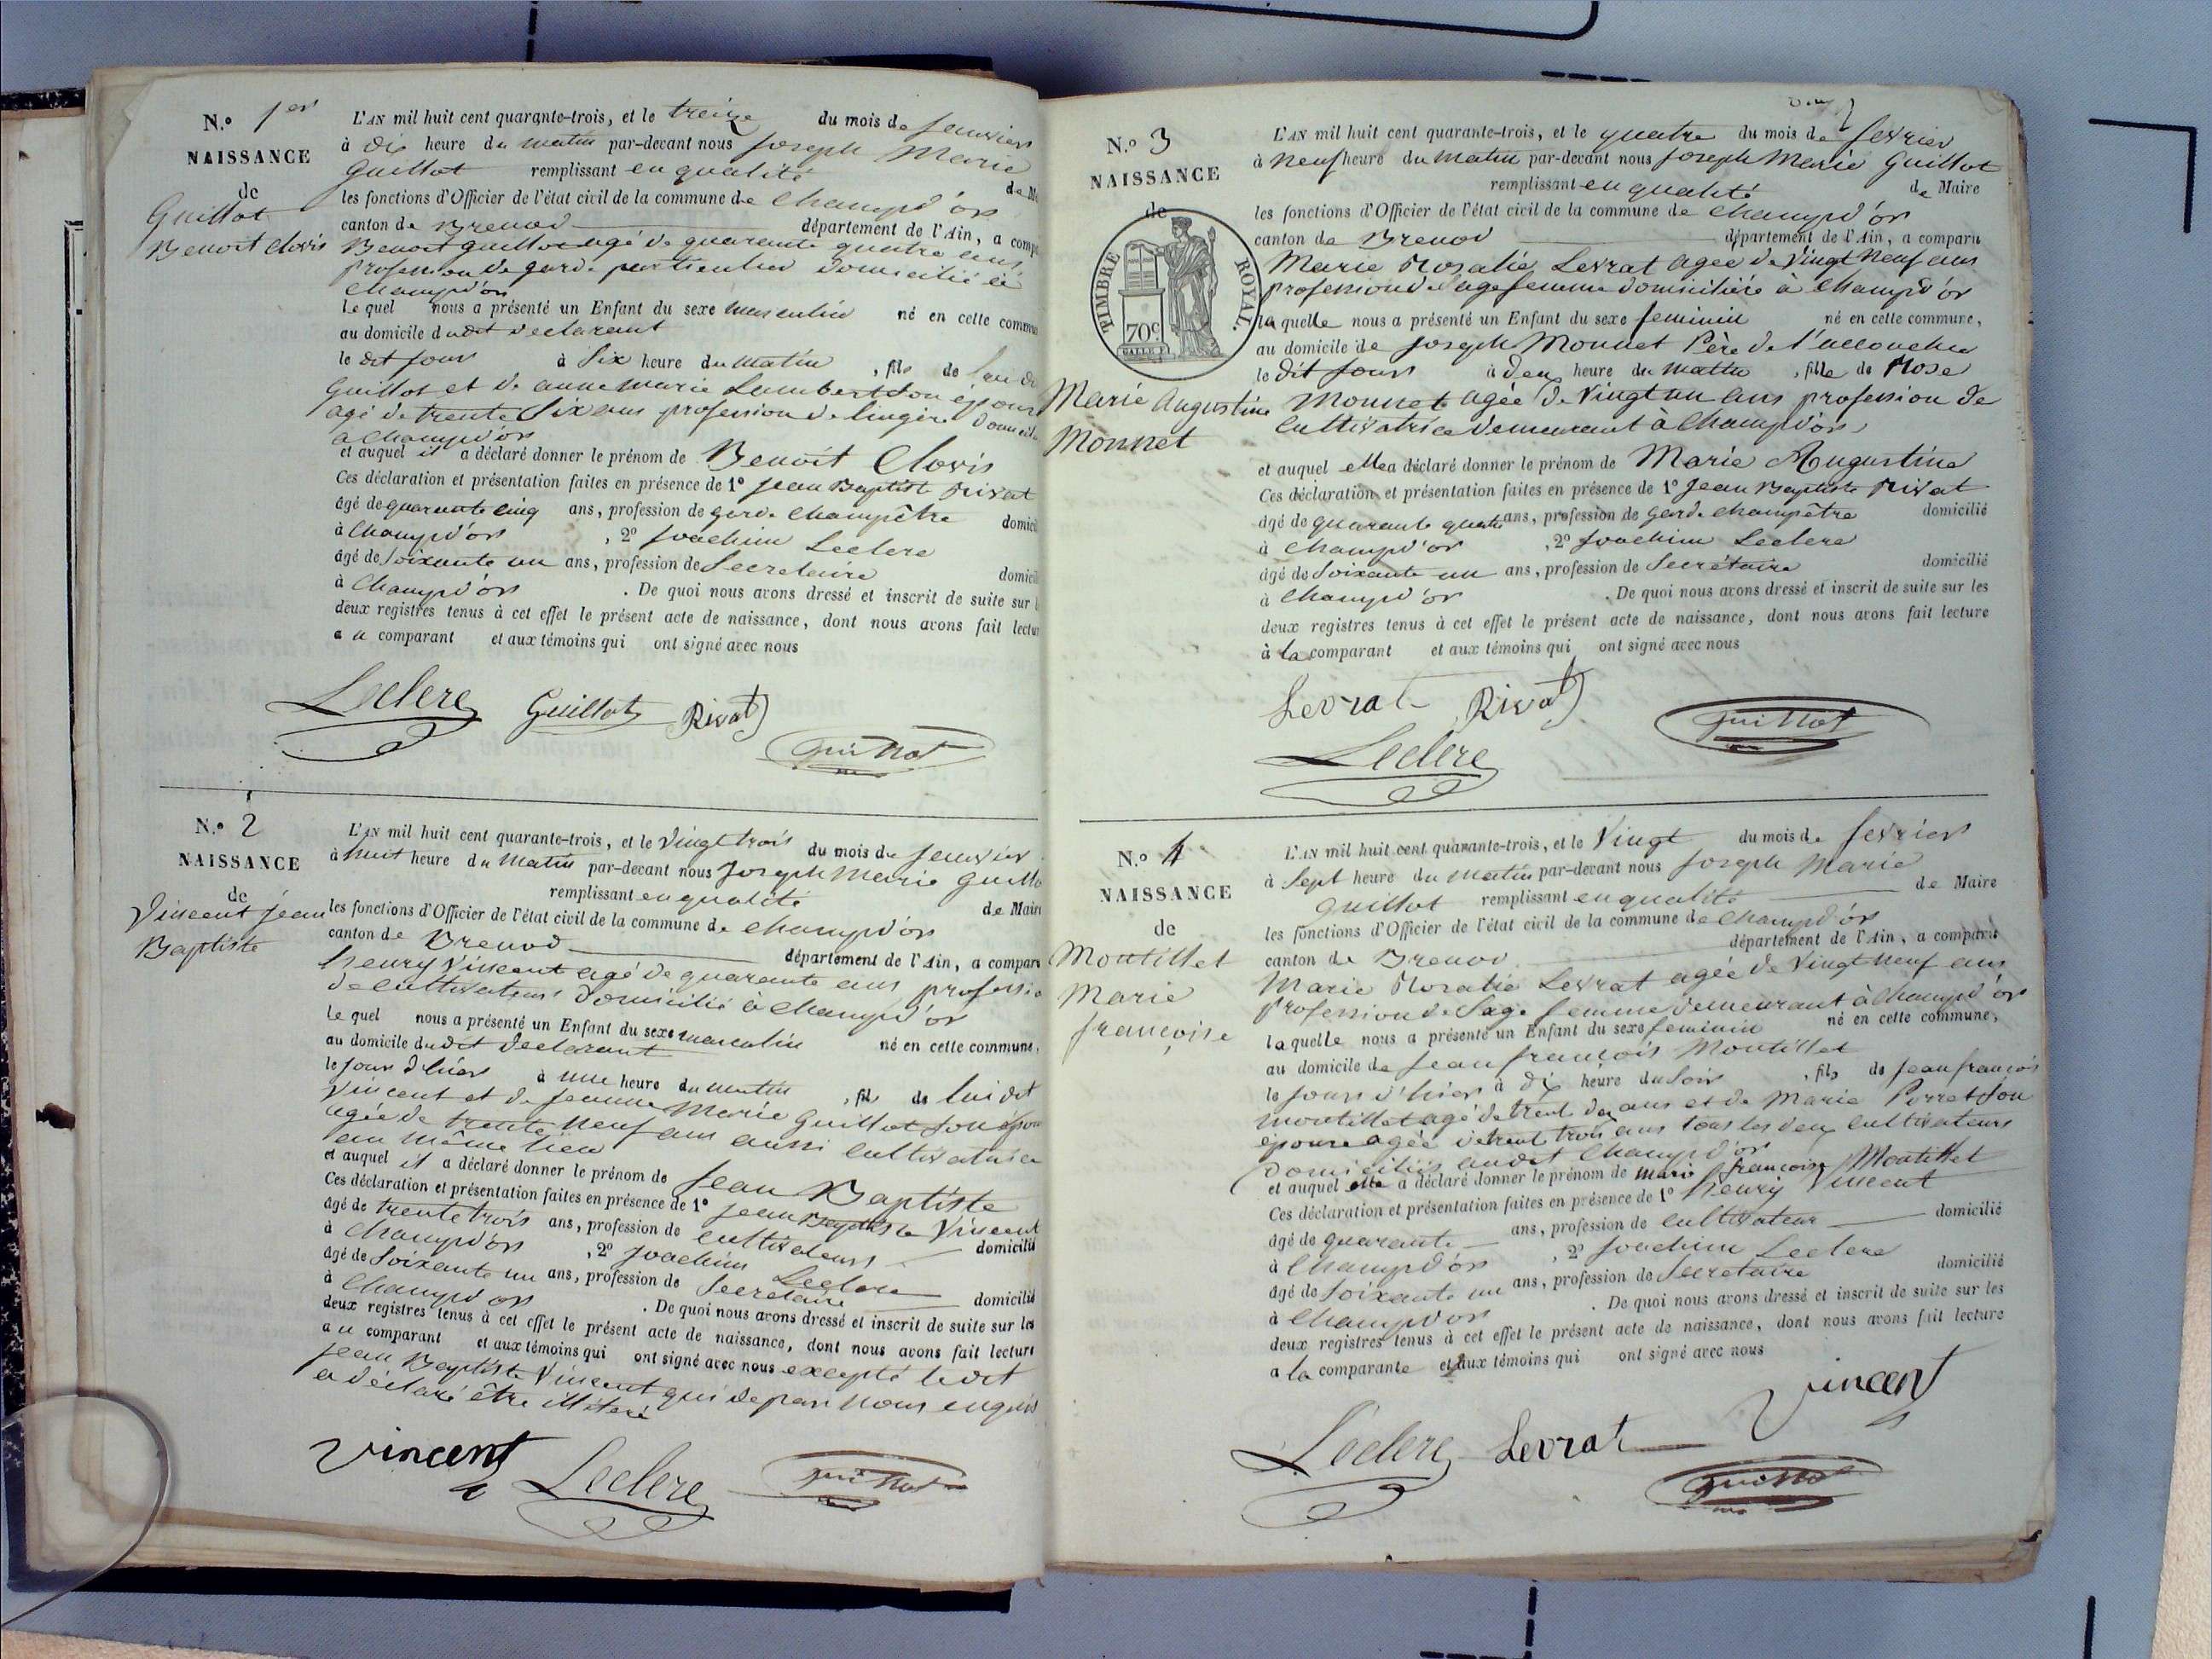 N.º 1er
NAISSANCE
de
Guillot
Benoit Clovis
L'AN mil huit cent quarante-trois, et le treize du mois de Janvier
à Dix heure du matin par-devant nous Joseph Marie
Guillot remplissant en qualité de M
les fonctions d'Officier de l'état civil de la commune de Champd'or
canton de Brenod département de l'Ain, a comp
Benoit Guillot agé de quarante quatre ans
profession de garde particulier domicilié à
Champd'or
Le quel nous a présenté un Enfant du sexe masculin né en cette commu
au domicile dudit declarant
le dit jour à Six heure du matin , fils de
Guillot et de anne marie Lambert son épou
agé de trente Six ans profession de lingère Domicil
a Champd'or
et auquel il a déclaré donner le prénom de Benoit Clovis
Ces déclaration et présentation faites en présence de 1º Jean Baptiste Rivat
âgé de quarante cinq ans, profession de garde Champêtre domici
à Champd'or , 2º Joachim Leclerc
âgé de Soixante un ans, profession de Secretaire domicil
à Champd'or . De quoi nous avons dressé et inscrit de suite sur l
deux registres tenus à cet effet le présent acte de naissance, dont nous avons fait lectur
au comparant et aux témoins qui ont signé avec nous
Leclerc Guillot Rivat
Guillot
N.º 2
NAISSANCE
de
Vincent Jean
Baptiste
L'AN mil huit cent quarante-trois, et le Vingt trois du mois de Janvier
à huit heure du matin par-devant nous Joseph Marie Guillo
remplissant en qualité de Maire
les fonctions d'Officier de l'état civil de la commune de Champd'or
canton de Brenod département de l'Ain, a comparu
henry Vincent agé de quarante ans professio
de cultivateur domicilié à Champd'or
le quel nous a présenté un Enfant du sexe masculin né en cette commune,
au domicile dudit declarant
le jour d'hier à une heure du matin , fils de lui dit
Vincent et de Jeanne Marie Guillot son épou
agée de trente neuf ans aussi cultivatrice
au même lieu
et auquel il a déclaré donner le prénom de Jean Baptiste
Ces déclaration et présentation faites en présence de 1º Jean Baptiste Vincent
âgé de trente trois ans, profession de cultivateur domicilié
à Champd'or , 2º Joachim Leclerc
âgé de Soixante un ans, profession de Secretaire domicilié
à Champd'or . De quoi nous avons dressé et inscrit de suite sur les
deux registres tenus à cet effet le présent acte de naissance, dont nous avons fait lecture
au comparant et aux témoins qui ont signé avec nous excepté ledit
Jean Baptiste Vincent qui de par nous enquis
a déclaré être illiteré
Vincent Leclerc Guillot
N.º 3
NAISSANCE
de
TIMBRE ROYAL.
70c
Marie Augustine
Monnet
L'AN mil huit cent quarante-trois, et le quatre du mois de fevrier
à Neuf heure du matin par-devant nous Joseph Marie Guillot
remplissant en qualité de Maire
les fonctions d'Officier de l'état civil de la commune de Champd'or
canton de Brenod département de l'Ain, a comparu
Marie Rosalie Levrat agée de Vingt Neuf ans
profession de Sage femme domiciliéé à Champd'or
laquelle nous a présenté un Enfant du sexe feminin né en cette commune,
au domicile de Joseph Monnet Père de l'accouchée
le dit jour à deux heure du matin , fille de Rose
Monnet agée de Vingt un ans profession de
cultivatrice demeurant à Champd'or
et auquel elle a déclaré donner le prénom de Marie Augustine
Ces déclaration et présentation faites en présence de 1º Jean Baptiste Rivat
âgé de quarante quatre ans, profession de garde champêtre domicilié
à Champd'or , 2º Joachim Leclerc
âgé de Soixante un ans, profession de Secrétaire domicilié
à Champd'or . De quoi nous avons dressé et inscrit de suite sur les
deux registres tenus à cet effet le présent acte de naissance, dont nous avons fait lecture
à la comparant et aux témoins qui ont signé avec nous
Levrat Rivat Guillot
Leclerc
N.º 4
NAISSANCE
de
Montillet
Marie
françoise
L'AN mil huit cent quarante-trois, et le Vingt du mois de fevrier
à Sept heure du matin par-devant nous Joseph Marie
Guillot remplissant en qualité de Maire
les fonctions d'Officier de l'état civil de la commune de Champd'or
canton de Brenod département de l'Ain, a comparu
Marie Rosalie Levrat agée de Vingt Neuf ans
profession de Sage femme demeurant à Champd'or
laquelle nous a présenté un Enfant du sexe feminin né en cette commune,
au domicile de Jean françois Montillet
le jour d'hier à dix heure du Soir , fils de Jean françois
Montillet agé de trente deux ans et de Marie Porret son
épouse agée de trente trois ans tous les deux cultivateurs
Domiciliés audit Champd'or
et auquel elle a déclaré donner le prénom de Marie françoise Montillet
Ces déclaration et présentation faites en présence de 1º henry Vincent
âgé de quarante ans, profession de cultivateur domicilié
à Champd'or , 2º Joachim Leclerc
âgé de Soixante un ans, profession de Secretaire domicilié
à Champd'or . De quoi nous avons dressé et inscrit de suite sur les
deux registres tenus à cet effet le présent acte de naissance, dont nous avons fait lecture
a la comparante et aux témoins qui ont signé avec nous
Vincent
Leclerc Levrat
Guillot